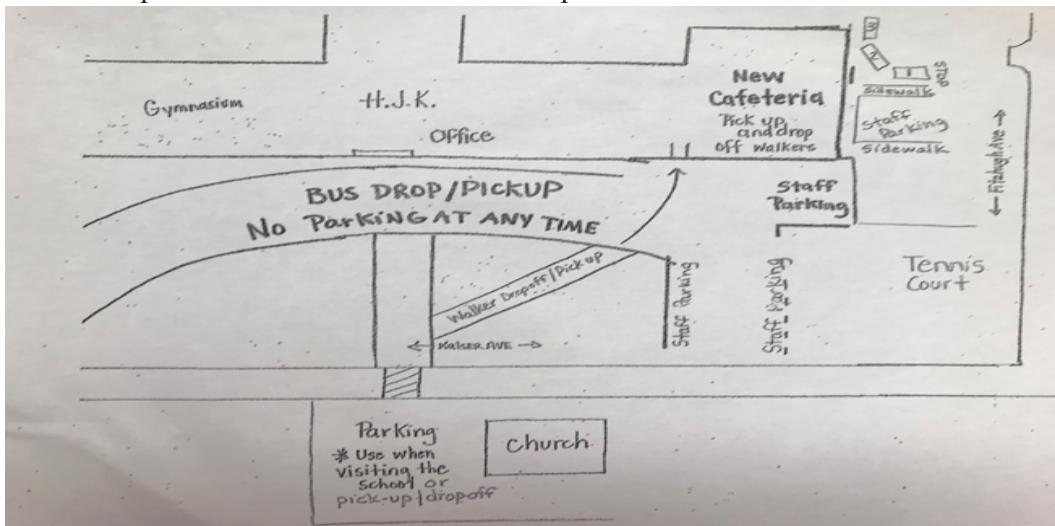 Gymnasium
H.J.K.
Office
New
Cafeteria
Pick up
and drop
off walkers
STOP
Sidewalk
Staff
Parking
Sidewalk
← Fitzhugh Ave →
BUS DROP/PICKUP
NO PARKING AT ANY TIME
Staff
Parking
Walker Dropoff/Pick up
← Kaiser AVE →
Staff Parking
Staff Parking
Tennis
Court
Parking
* Use when
visiting the
school or
pick-up/dropoff
Church